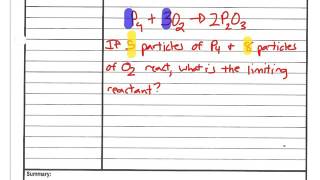 P₄ + 3O₂ → 2P₂O₃
If 5 particles of P₄ + 8 particles
of O₂ react, what is the limiting
reactant?
Summary: